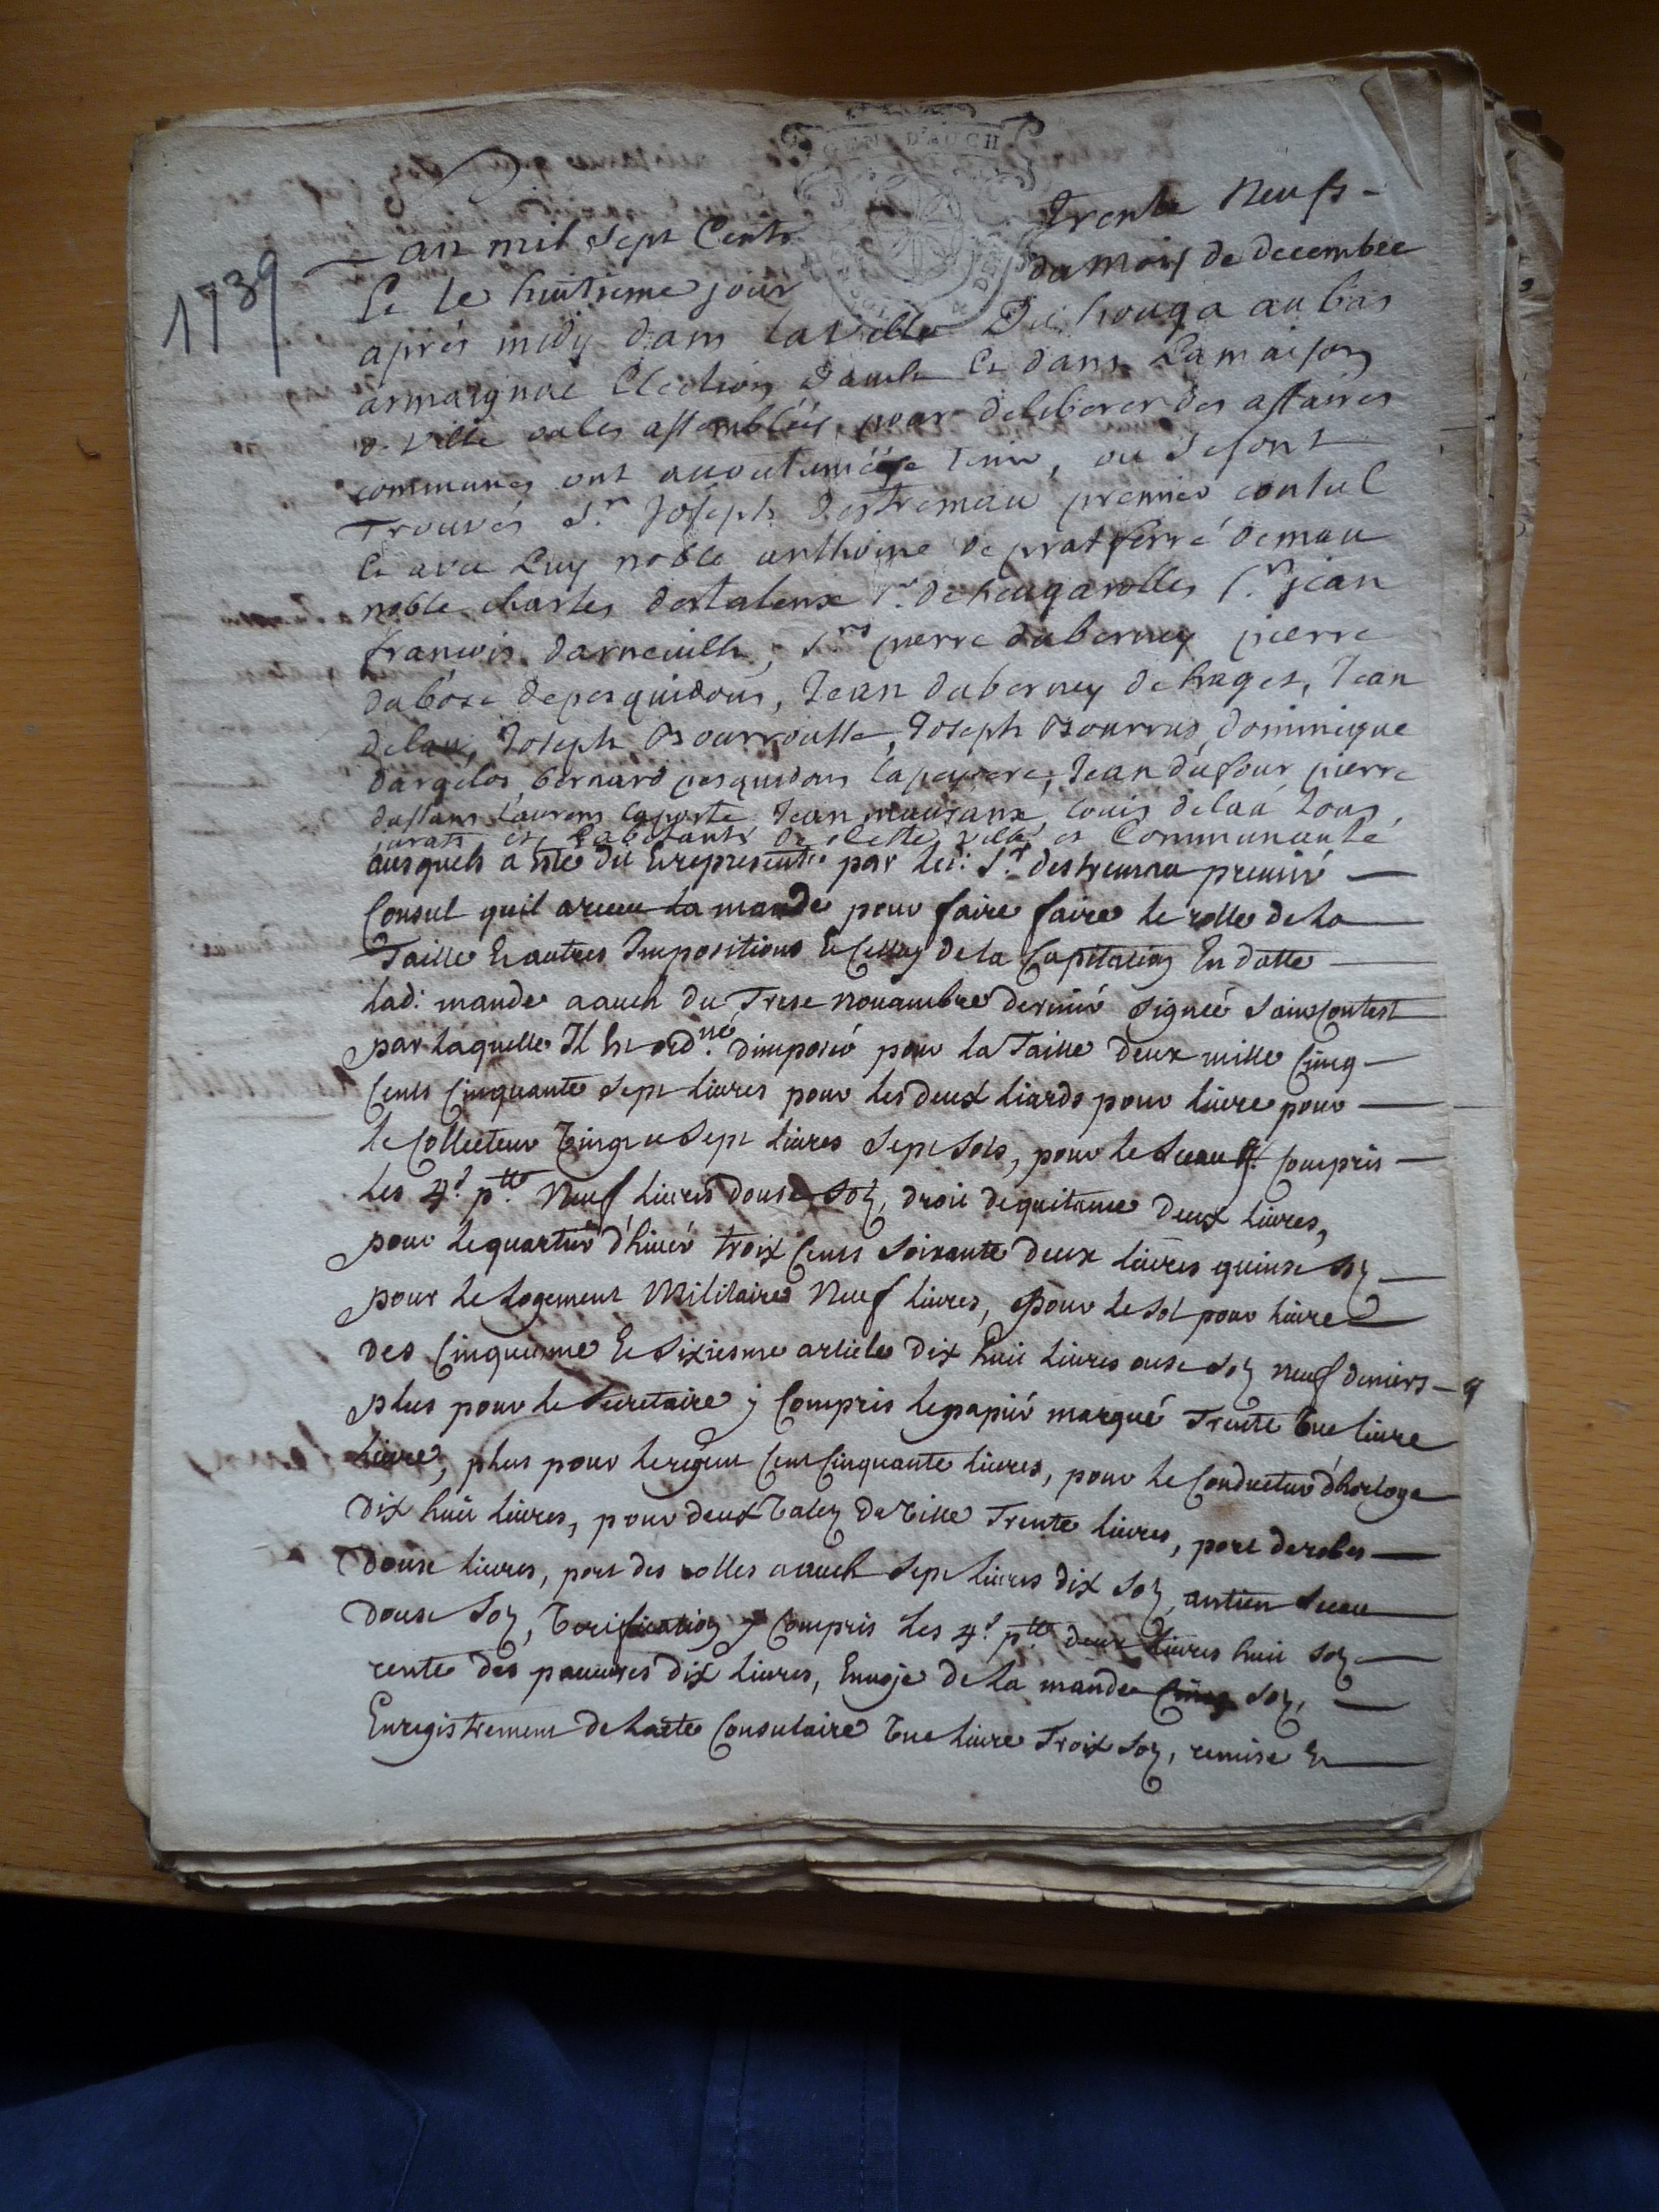 GEN. D'AUCH
1739
an mil sept Cents Trente Neufs
Et le huitieme jour du mois de decembre
aprés midy dans la ville Du houga au bas
armaignac Election d'auch Et dans La maison
de ville ou les assemblées pour deliberer des affaires
communes ont accoutumée se tenir, ou se sont
Trouvés Sr. Joseph destremau premier consul
Et avec Luy noble anthoine de pratferré demau
noble charles destalenx Sr. de heugarolles Sr. jean
francois darneuilh, Srs pierre duberney pierre
dubosc depesquidous, Jean duberney de hages, Jean
delau, Joseph Bourrousse, Joseph Bourrus, dominique
dargelos, bernard pesquidous lapeyrere, Jean dufour pierre
dussans Laurens laporte Jean mausans, louis delaa tous
jurats et habitants de Cette ville et Communauté
ausquels a esté dit Et representé par led: Sr. destremau premié
Consul quil a receu la mande pour faire faire le rolle de la
Taille Et autres Impositions Et Celluy de la Capitation En datte
lad: mande a auch du Trese nouambre dernié signeé Saincontest
par laquelle Il Est ordné. dimposer pour la Taille deux mille Cinq
Cents Cinquante sept livres pour les deux liards pour livre pour
le Collecteur Vingt e sept livres sept sols, pour le sceau Compris
les 4d. ptte Neuf livres douse soz, droit de quitance deux livres,
pour le quartié d'hiuér troix Cents soixante deux livres quinse soz
pour le logement Militaire Neuf livres, pour le sol pour livre
des Cinquieme Et sixiesme article dix huit livres onse soz neuf deniers 9
plus pour le secretaire y Compris le papié marqué Trente Vne livre
livre, plus pour le regent Cent Cinquante livres, pour le Conducteur d'horloge
dix huit livres, pour deux Valez de Ville Trente livres, port de robes
douse livres, port des rolles a auch sept livres dix soz, antien sceau
douse soz, Verification y Compris les 4d. ptte deux livres huit soz
rente des pauures dix livres, Enuoje de la mande Cinq soz,
Enregistrement de lacte Consulaire Vne livre Troix soz, remise Et